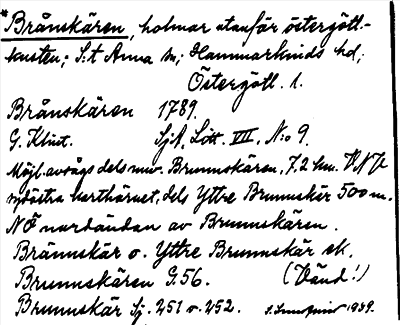 *Brånskären, holmar utanför östergötl.-
kusten; S:t Anna sn; Hammarkinds hd;
Östergötl. l.
Brånskären 1789.
G. Klint. Sjöf. Lott. VIII, N:o 9.
Möjl. avsågs dels nuv. Brunnskären, 7,2 km. VNV
sydöstra karthörnet, dels Yttre Brunnskär 500 m.
NÖ nordändan av Brunnskären.
Brännskär o. Yttre Brunnskär ek.
Brunnskären G.56. (Vänd!)
Brunnskär Sj. 251 o. 252. 1939.